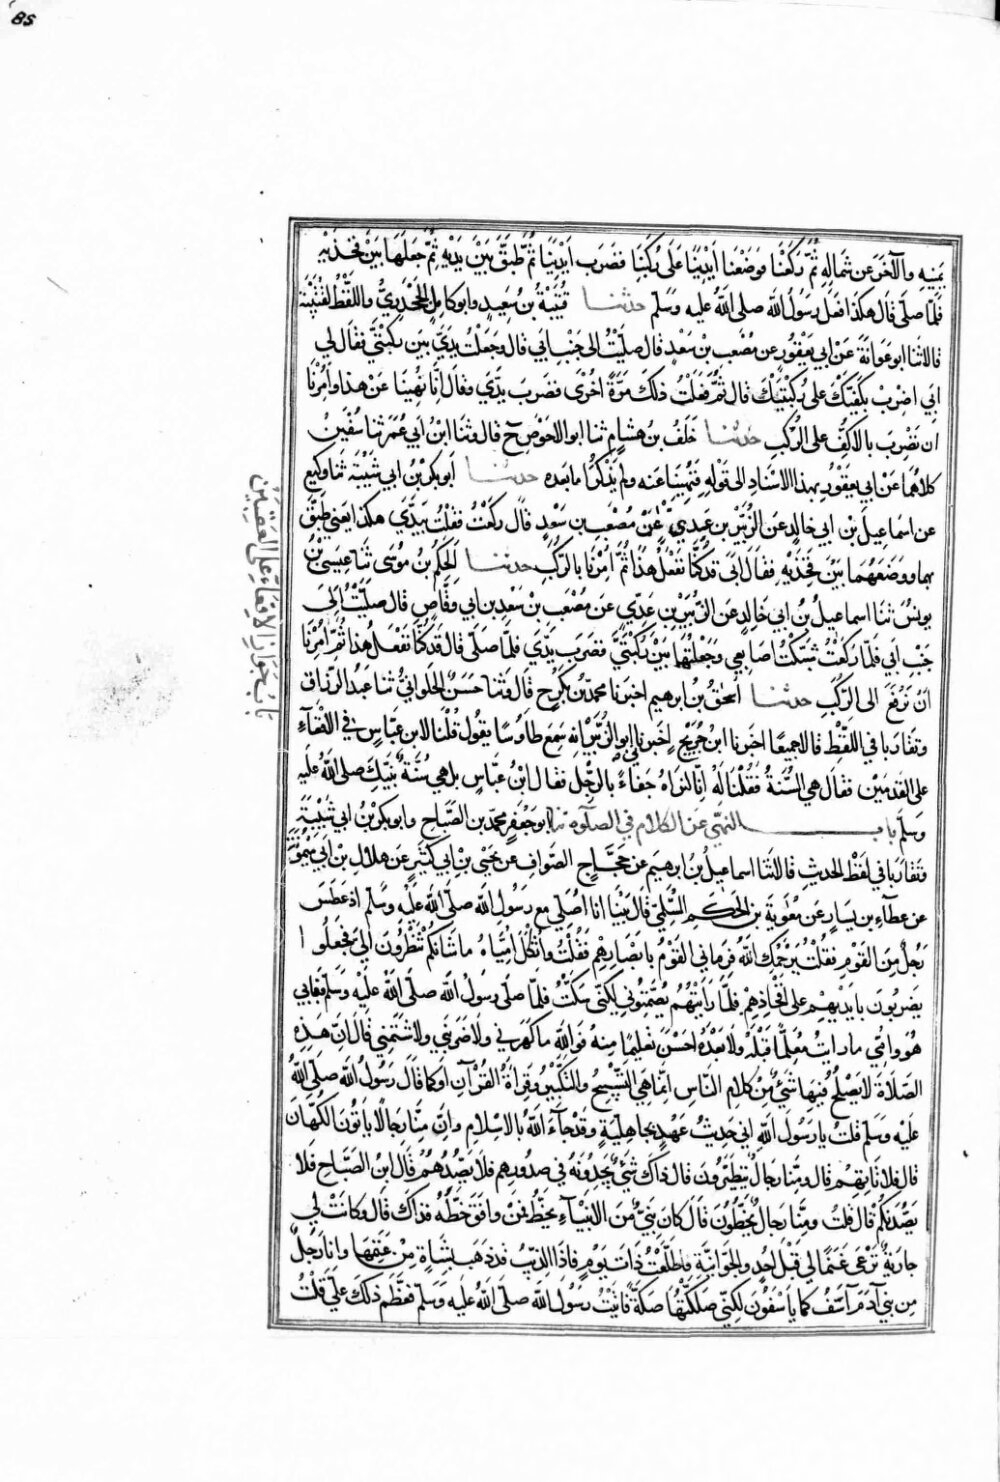 85
يمينه والآخر عن شماله ثم ركعنا فوضعنا ايدينا على ركبنا فضرب ايدينا ثم طبق بين يديه ثم جعلها بين فخذيه
فلما صلى قال هكذا فعل رسول الله صلى الله عليه وسلم حدثنا قتيبة بن سعيد وابو كامل الجحدري واللفظ لقتيبة
قالا ثنا ابو عوانة عن ابي يعفور عن مصعب بن سعد قال صليت الى جنب ابي قال وجعلت يدي بين ركبتي فقال لي
ابي اضرب بكفيك على ركبتيك قال ثم فعلت ذلك مرة اخرى فضرب يدي وقال انا نهينا عن هذا وامرنا
ان نضرب بالاكف على الركب حدثنا خلف بن هشام ثنا ابو الاحوص ح قال وثنا ابن ابي عمر ثنا سفين
كلاهما عن ابي يعفور بهذا الاسناد الى قوله فنهينا عنه ولم يذكرا ما بعده حدثنا ابو بكر بن ابي شيبة ثنا وكيع
عن اسماعيل بن ابي خالد عن الزبير بن عدي عن مصعب بن سعد قال ركعت فقلت بيدي هكذا يعني طبق
بهما ووضعهما بين فخذيه فقال ابي قد كنا نفعل هذا ثم امرنا بالركب حدثنا الحكم بن موسى ثنا عيسى بن
يونس ثنا اسماعيل بن ابي خالد عن الزبير بن عدي عن مصعب بن سعد بن ابي وقاص قال صليت الى
جنب ابي فلما ركعت شبكت اصابعي وجعلتهما بين ركبتي فضرب يدي فلما صلى قال قد كنا نفعل هذا ثم امرنا
ان نرفع الى الركب حدثنا اسحق بن ابرهيم اخبرنا محمد بن بكر ح قال وثنا حسن الحلواني ثنا عبد الرزاق
وتقاربا في اللفظ قالا جميعا اخبرنا ابن جريج اخبرني ابو الزبير انه سمع طاوسا يقول قلنا لابن عباس في الاقعاء
على القدمين فقال هي السنة فقلنا له انا لنراه جفاء بالرجل فقال ابن عباس بل هي سنة نبيك صلى الله عليه
وسلم باب النهي عن الكلام في الصلوة ثنا ابو جعفر محمد بن الصباح وابو بكر بن ابي شيبة
وتقاربا في لفظ الحديث قالا ثنا اسماعيل بن ابرهيم عن حجاج الصواف عن يحيى بن ابي كثير عن هلال بن ابي ميمونة
عن عطاء بن يسار عن معوية بن الحكم السلمي قال بينا انا اصلي مع رسول الله صلى الله عليه وسلم اذ عطس
رجل من القوم فقلت يرحمك الله فرماني القوم بابصارهم فقلت واثكل امياه ما شانكم تنظرون الي فجعلوا
يضربون بايديهم على افخاذهم فلما رايتهم يصمتوني لكني سكت فلما صلى رسول الله صلى الله عليه وسلم فبابي
هو وامي ما رايت معلما قبله ولا بعده احسن تعليما منه فوالله ما كهرني ولا ضربني ولا شتمني قال ان هذه
الصلاة لا يصلح فيها شئ من كلام الناس انما هي التسبيح والتكبير وقراة القران او كما قال رسول الله صلى الله
عليه وسلم قلت يا رسول الله اني حديث عهد بجاهلية وقد جاء الله بالاسلام وان منا رجالا ياتون الكهان
قال فلا تاتهم قال ومنا رجال يتطيرون قال ذاك شئ يجدونه في صدورهم فلا يصدهم قال ابن الصباح فلا
يصدنكم قال قلت ومنا رجال يخطون قال كان نبي من الانبياء يخط فمن وافق خطه فذاك قال وكانت لي
جارية ترعى غنما لي قبل احد والجوانية فاطلعت ذات يوم فاذا الذيب قد ذهب بشاة من غنمها وانا رجل
من بني آدم آسف كما ياسفون لكني صككتها صكة فاتيت رسول الله صلى الله عليه وسلم فعظم ذلك علي قلت
باب جواز الاقعاء على العقبين